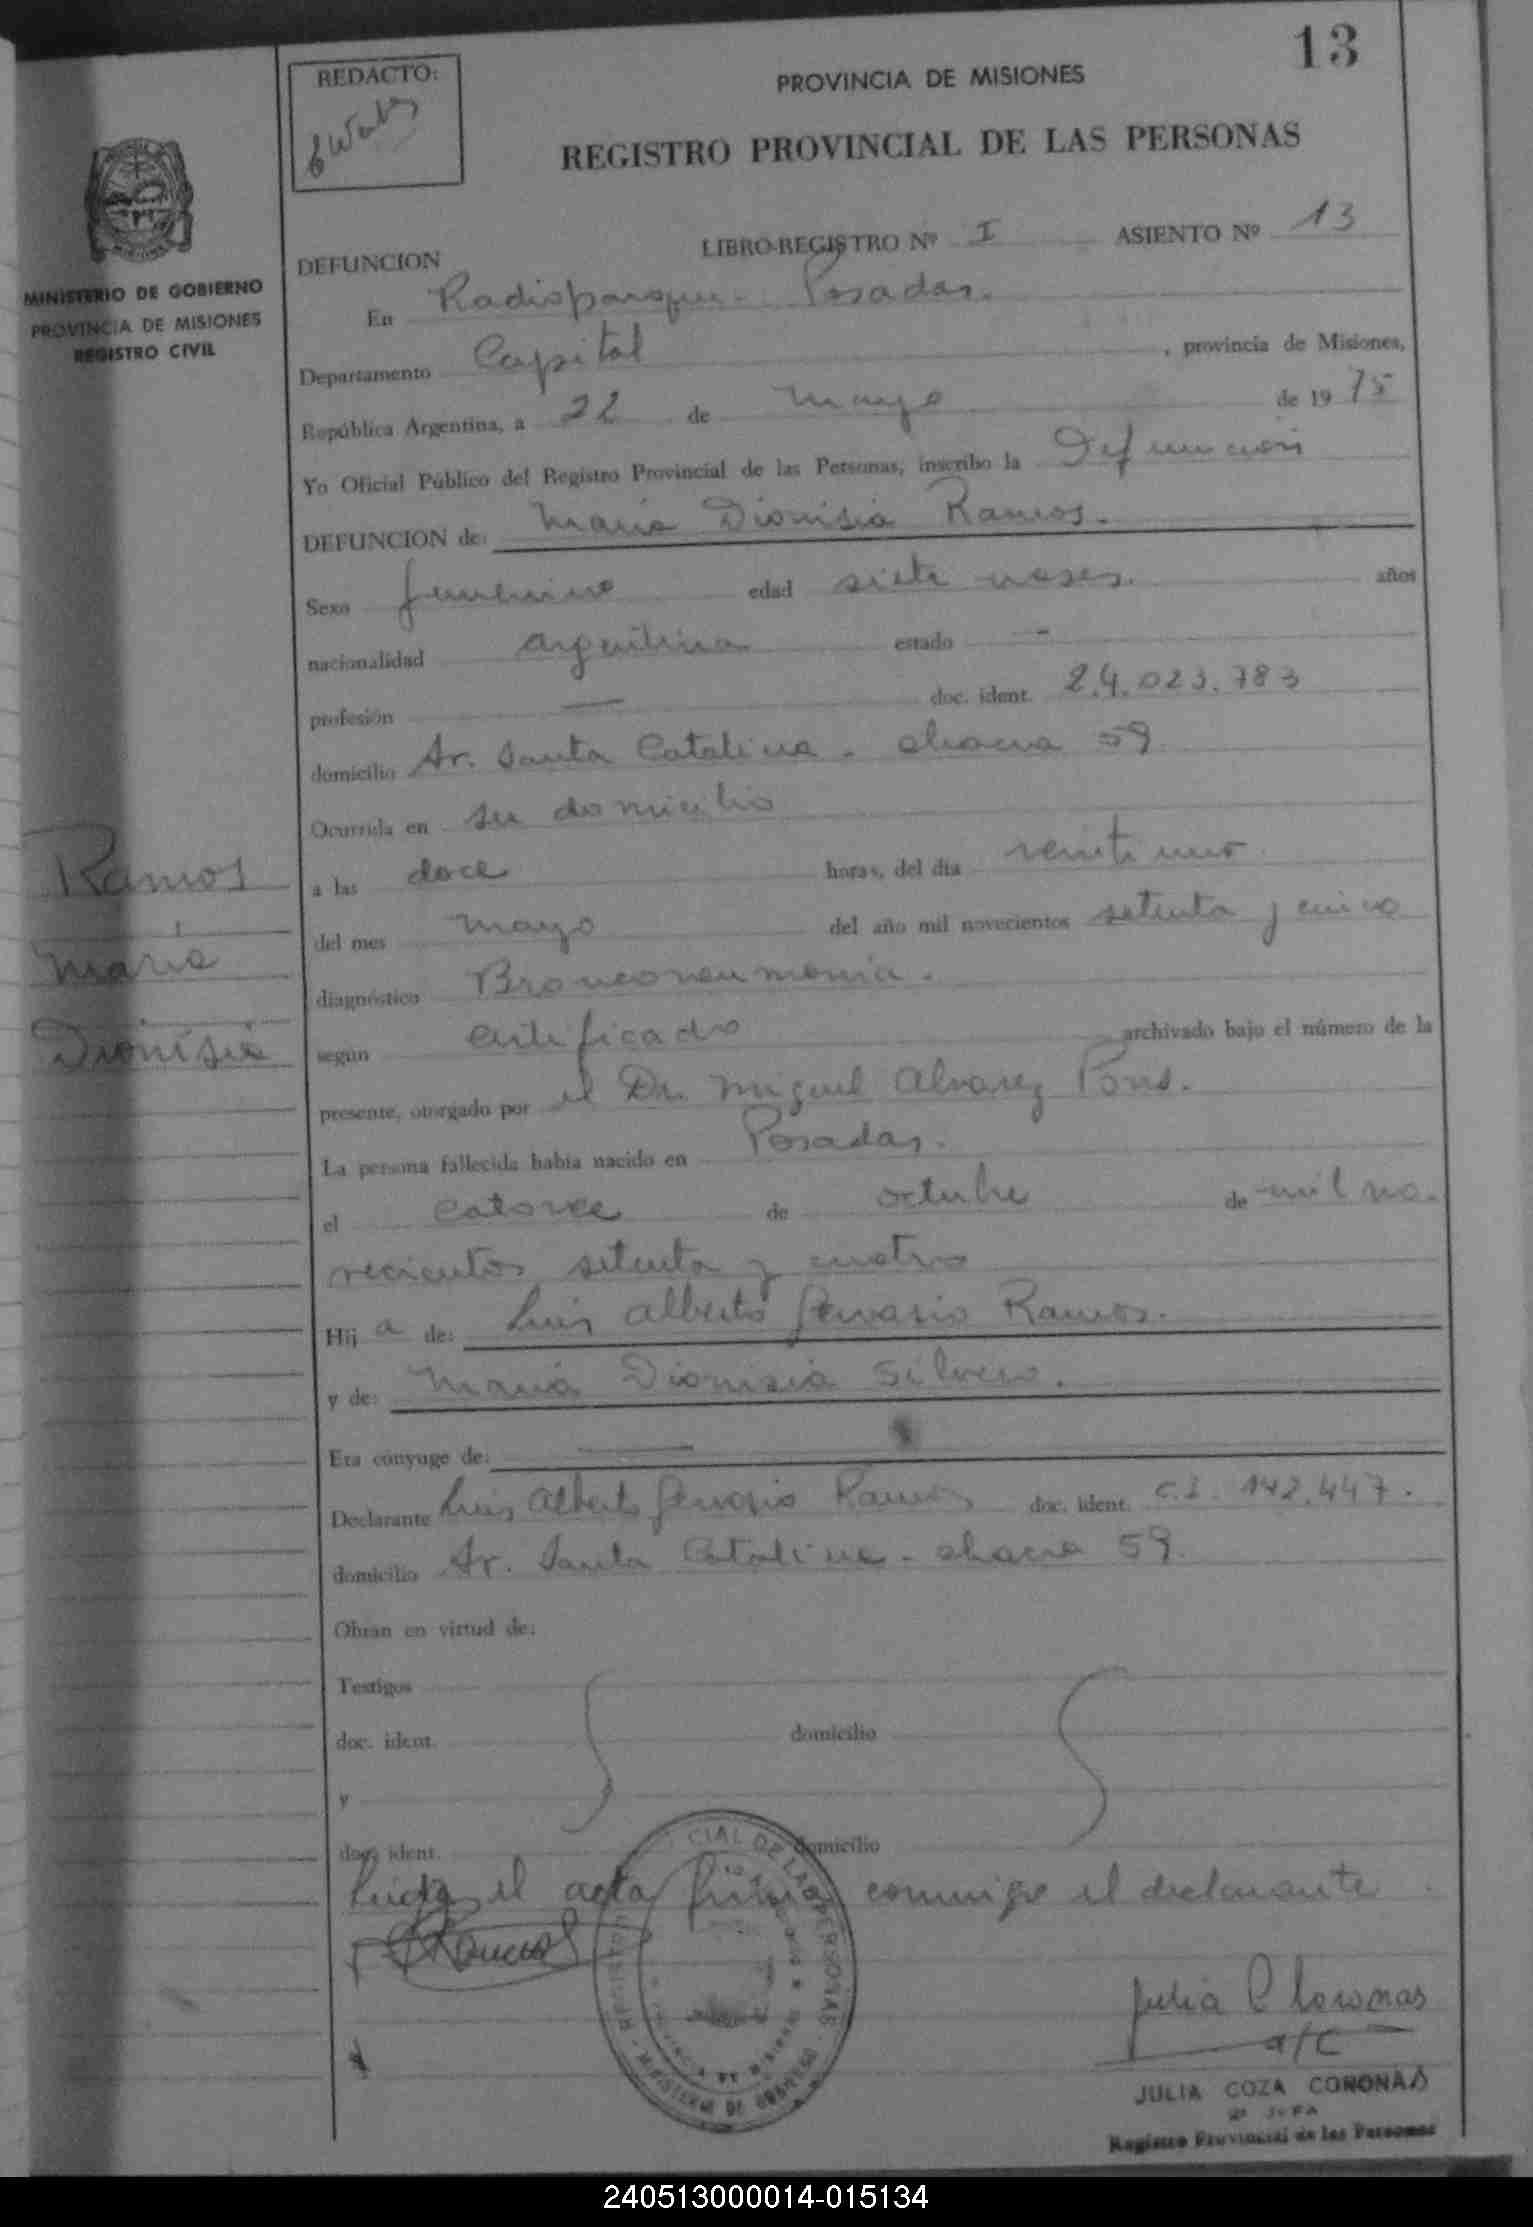 13
REDACTO:
PROVINCIA DE MISIONES
REGISTRO PROVINCIAL DE LAS PERSONAS
MINISTERIO DE GOBIERNO
PROVINCIA DE MISIONES
REGISTRO CIVIL
DEFUNCION LIBRO-REGISTRO Nº I ASIENTO Nº 13
En Radioparque - Posadas.
Departamento Capital, provincia de Misiones,
República Argentina, a 22 de mayo de 1975
Yo Oficial Público del Registro Provincial de las Personas, inscribo la Defuncion
DEFUNCION de: Maria Dionisia Ramos.
Sexo femenino edad siete meses. años
nacionalidad argentina estado -
profesión — doc. ident. 24.023.783
domicilio Av. Santa Catalina - chacra 59
Ocurrida en su domicilio
a las doce horas, del día veintiuno
del mes mayo del año mil novecientos setenta y cinco
diagnóstico Bronconeumonia.
según certificado archivado bajo el número de la
presente, otorgado por el Dr. Miguel Alvarez Pons.
La persona fallecida había nacido en Posadas.
el catorce de octubre de mil no-
vecientos setenta y cuatro
Hij a de: Luis Alberto Gervasio Ramos.
y de: Maria Dionisia Silvero.
Era cónyuge de: —
Declarante Luis Alberto Gervasio Ramos doc. ident. C.I. 142.447.
domicilio Av. Santa Catalina - chacra 59.
Obran en virtud de:
Testigos
doc. ident. domicilio
y
doc. ident. domicilio
Leida el acta firma conmigo el declarante.
Ramos
Ramos
Maria
Dionisia
Julia C Coronas
a/c
JULIA COZA CORONAS
2ª JEFA
Registro Provincial de las Personas
240513000014-015134